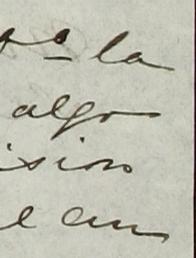 la
algo
ision
el an